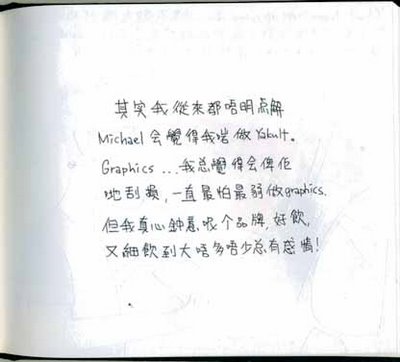 其实我從來都唔明点解
Michael 会覺得我啱做 Yakult。
Graphics ... 我总覺得会俾佢
哋刮損，一直最怕最弱做 graphics.
但我真心鈡意呢个品牌，好飲，
又細飲到大唔多唔少总有感情！